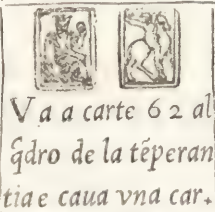 Va a carte 62 al
q̃dro de la tẽperan
tia e caua vna car.